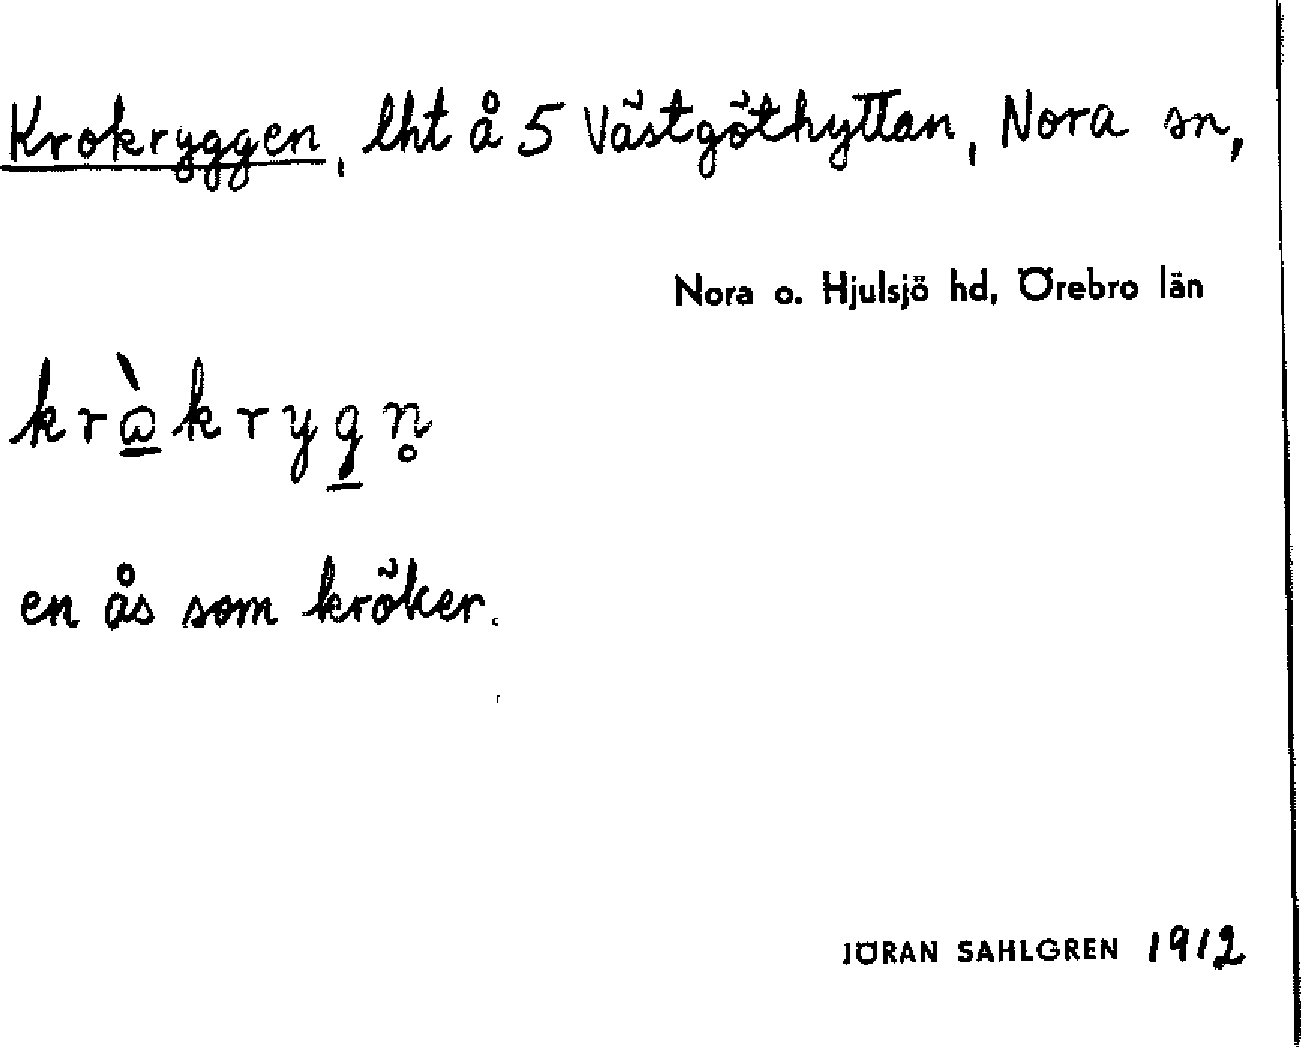 Krokryggen, lht å 5 Västgöthyttan, Nora sn,
Nora o. Hjulsjö hd, Örebro län
krὼ̲kryg̲n̥
en ås som kröker.
JÖRAN SAHLGREN 1912